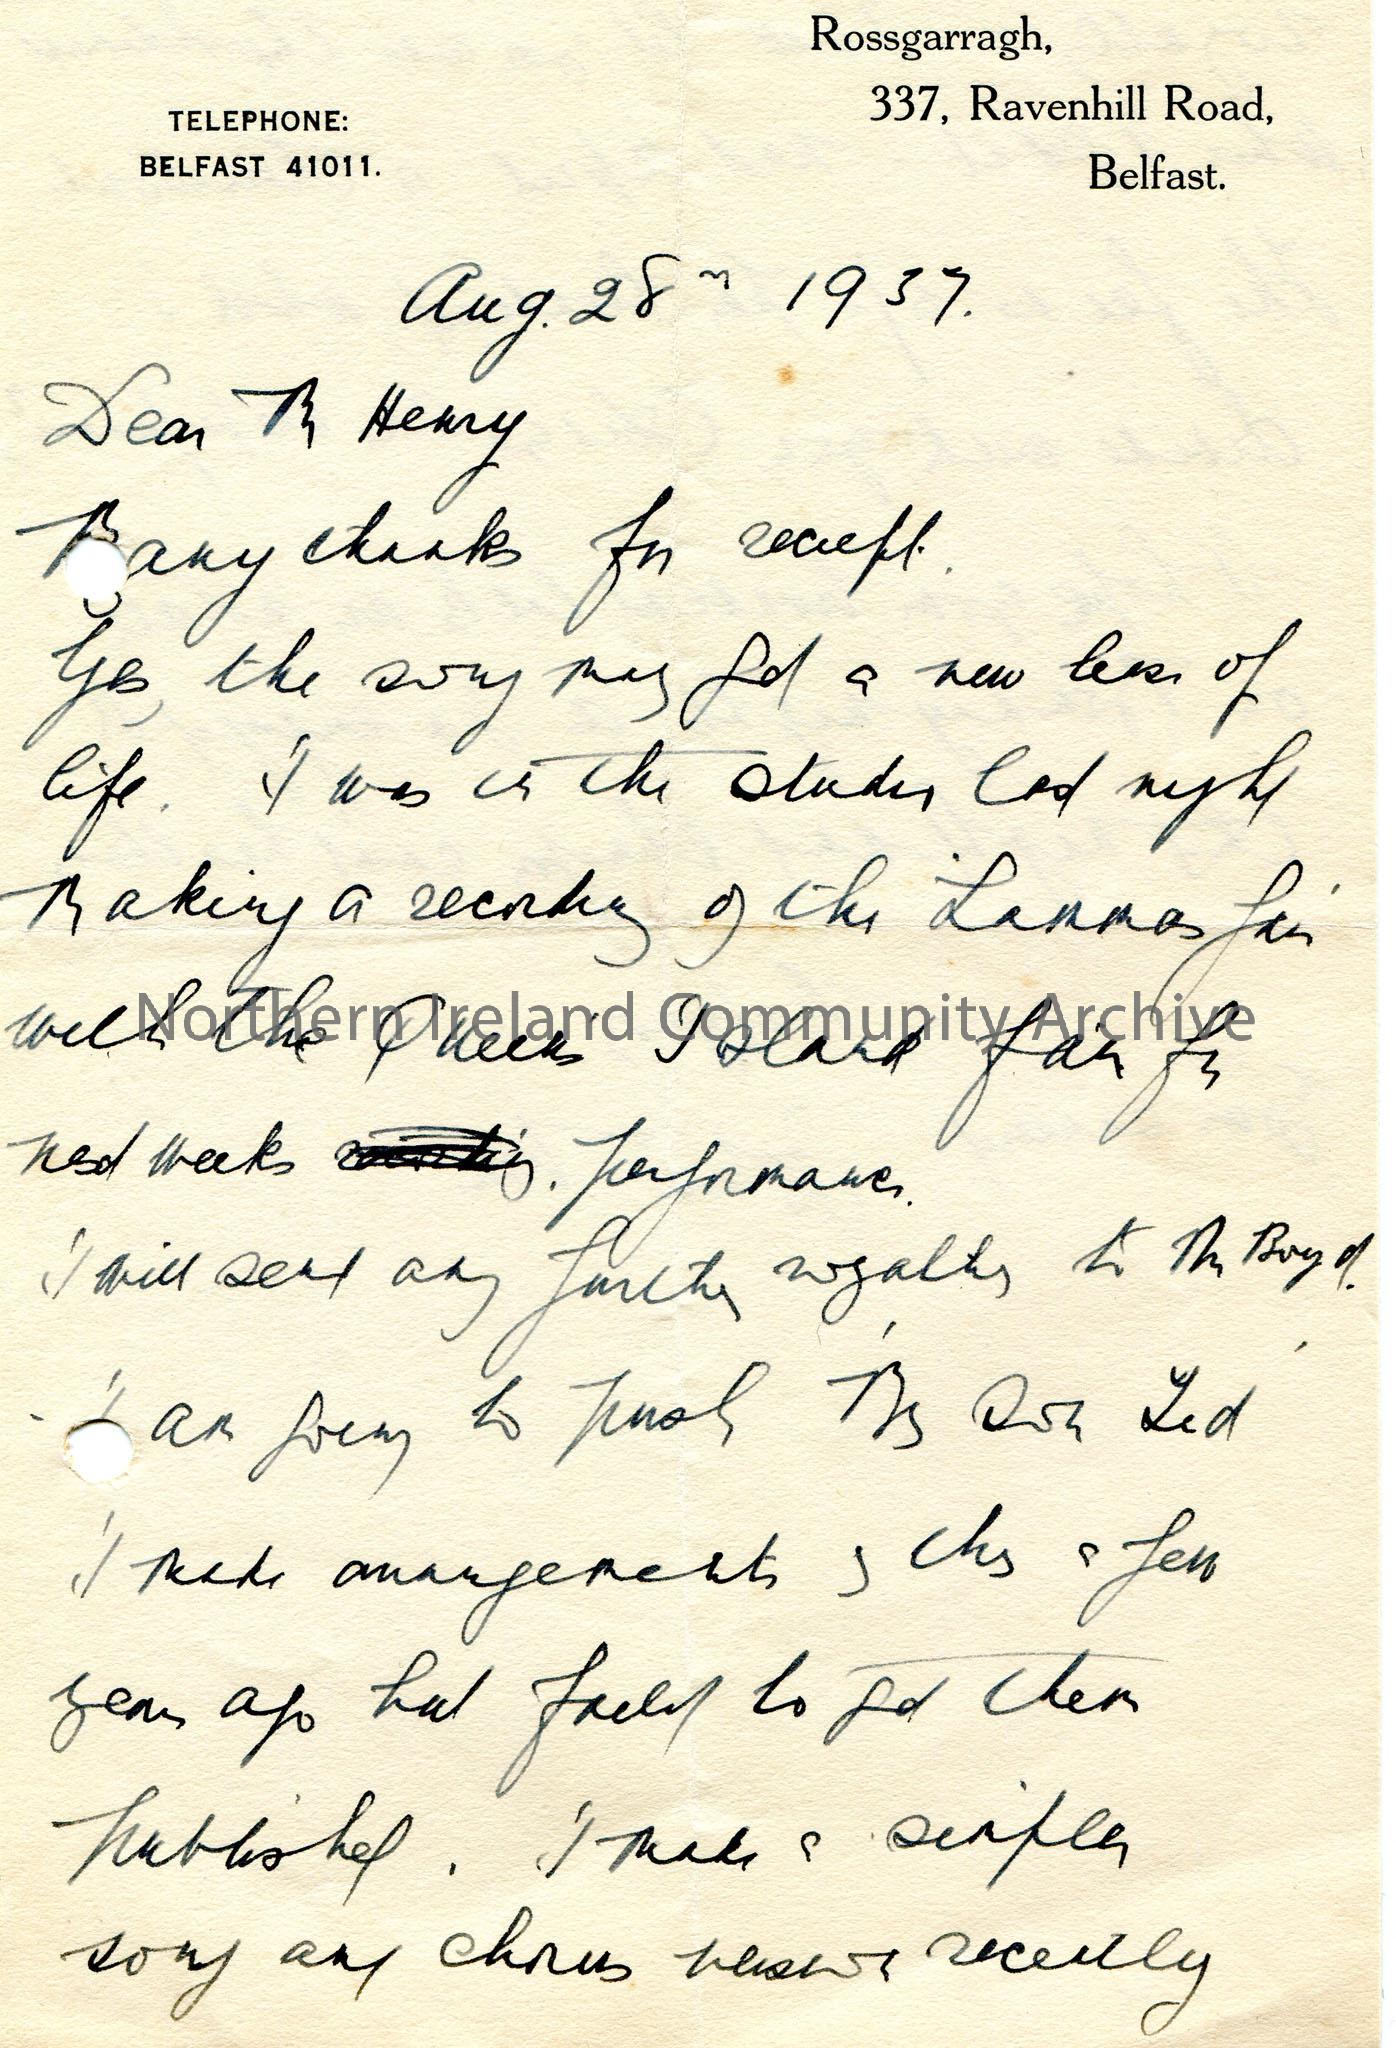 Rossgarragh,
337, Ravenhill Road,
Belfast.
TELEPHONE:
BELFAST 41011.
Aug. 28th 1937.
Dear Mr Henry
Many thanks for receipt.
Yes, the song may get a new lease of
life. I was in the studio last night
making a recording of the Lammas fair
with the Queen's Island Fair for
next weeks performance.
I will send any further royalties to Mr Boyd.
I am going to push My Son Ted
I made arrangements of this a few
years ago but failed to get them
published. I made a simpler
song and chorus version recently
Northern Ireland Community Archive